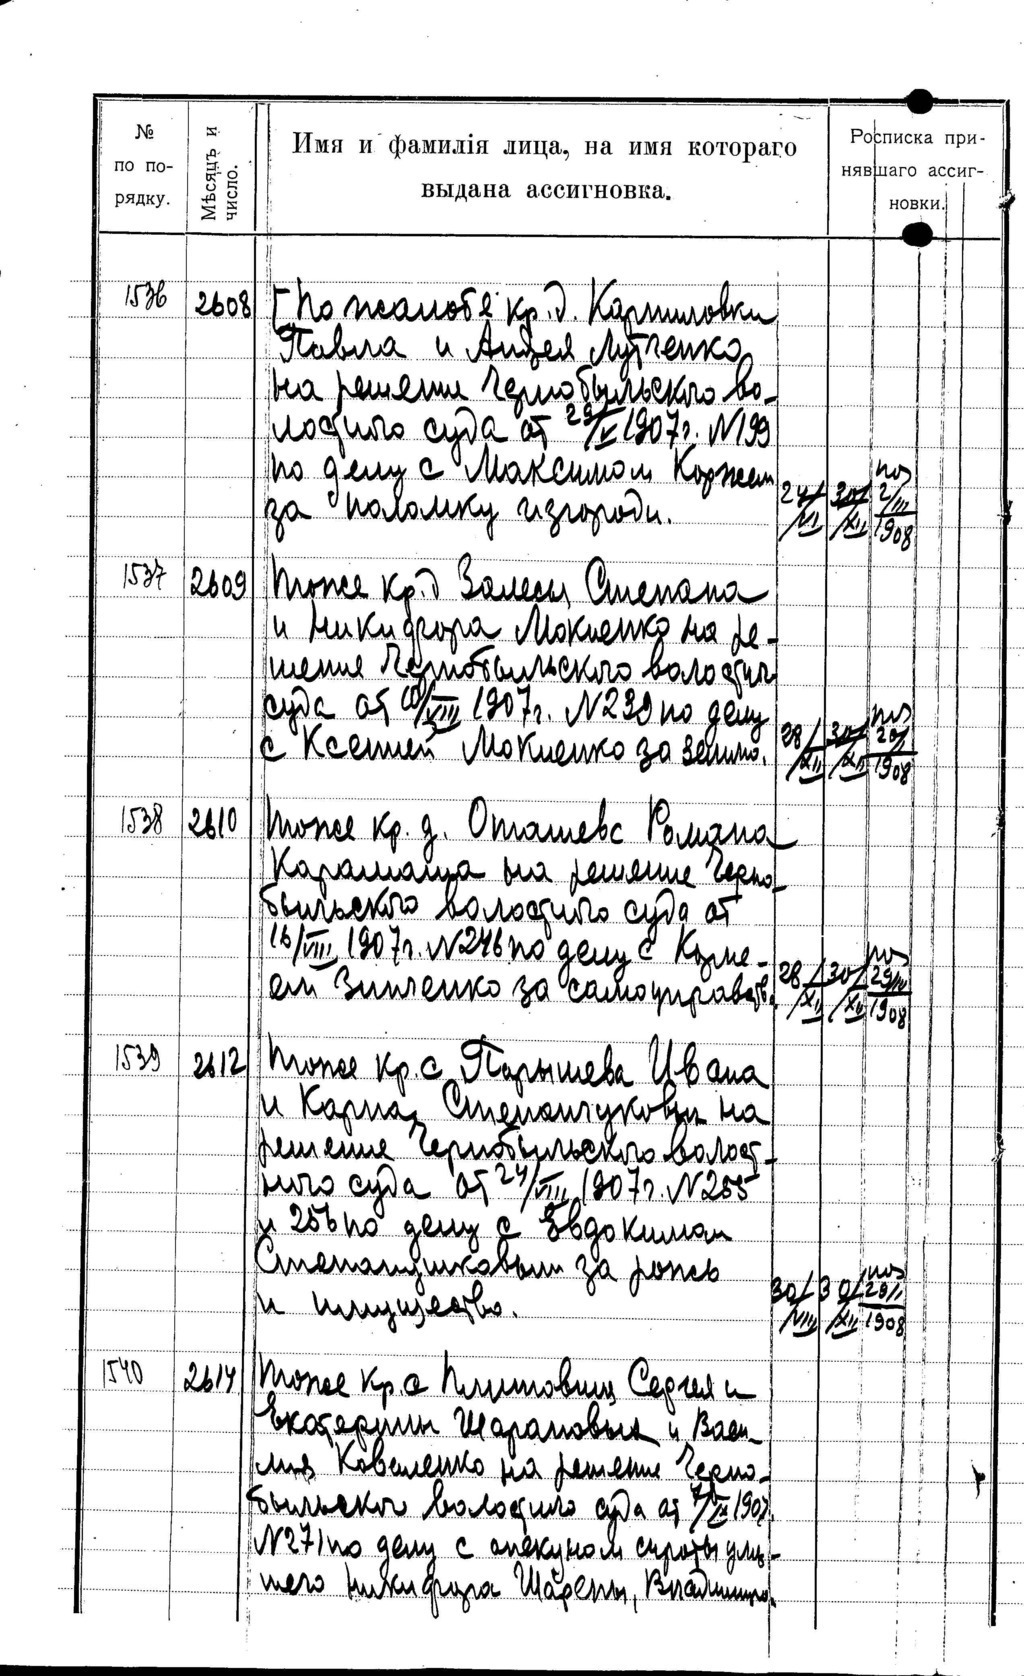 № по порядку.
Мѣсяцъ и число.
Имя и фамилія лица, на имя котораго
выдана ассигновка.
Росписка принявшаго ассигновки.
1536 2608 По жалобѣ кр. д. Карпиловки
Павла и Андрея Лутченко
на решение Чернобыльского во-
лостного суда от 29/V 1907 г. N199
по делу с Максимом Коржем
за поломку изгороди.
24/VI 30/XII 2/III 1908
1537 2609 Тоже кр. д Залесья Степана
и Никифора Мокиенко на ре-
шение Чернобыльского волостн
суда от 10/VIII 1907 г. N239 по делу
с Ксенией Мокиенко за землю.
28/XII 30/XII 29/I 1908
1538 2610 Тоже кр. д. Оташевс Романа
на решение Черно-
быльского волостного суда от
16/VIII 1907 г. N246 по делу с Корне-
ем Зинченко за самоуправств.
28/XII 30/XII 1908
1539 2612 Тоже кр. с Парышева Ивана
и Карпа на
решение Чернобыльского волост-
ного суда от 24/VIII 1907 г. N255
и 256 по делу с Евдокимом
за рожь
и имущество.
30/VIII 30/XII 29/I 1908
1540 2614 Тоже кр. с Плитовищ Сергея и
Екатерины и Васи-
лия Коваленко на решение Черно-
быльского волостного суда от 7/IX 1907
N271 по делу с опекуном сироты умер-
шего Никифора